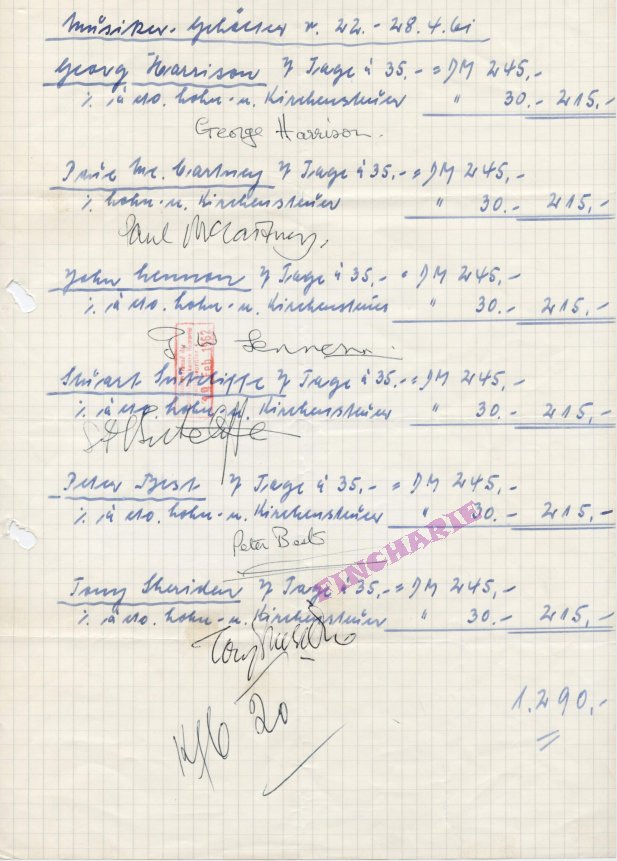 Musiker-Gehälter v. 22.-28.4.61
Georg Harrison 7 Tage à 35,- = DM 245,-
% à cto. Lohn-u. Kirchensteuer " 30.- 215,-
George Harrison.
Paul Mc. Cartney 7 Tage à 35,- = DM 245,-
% Lohn-u. Kirchensteuer " 30.- 215,-
Paul McCartney.
John Lennon 7 Tage à 35,- = DM 245,-
% à cto. Lohn-u. Kirchensteuer " 30.- 215,-
Lennon
Feb. 1962
Stuart Sutcliffe 7 Tage à 35,- = DM 245,-
% à cto. Lohn-u. Kirchensteuer " 30.- 215,-
Sutcliffe
Peter Best 7 Tage à 35,- = DM 245,-
% à cto. Lohn-u. Kirchensteuer " 30.- 215,-
Peter Best
FINCHARIE
Tony Sheridan 7 Tage à 35,- = DM 245,-
% à cto. Lohn-u. Kirchensteuer " 30.- 215,-
Tony
1.290,-
20